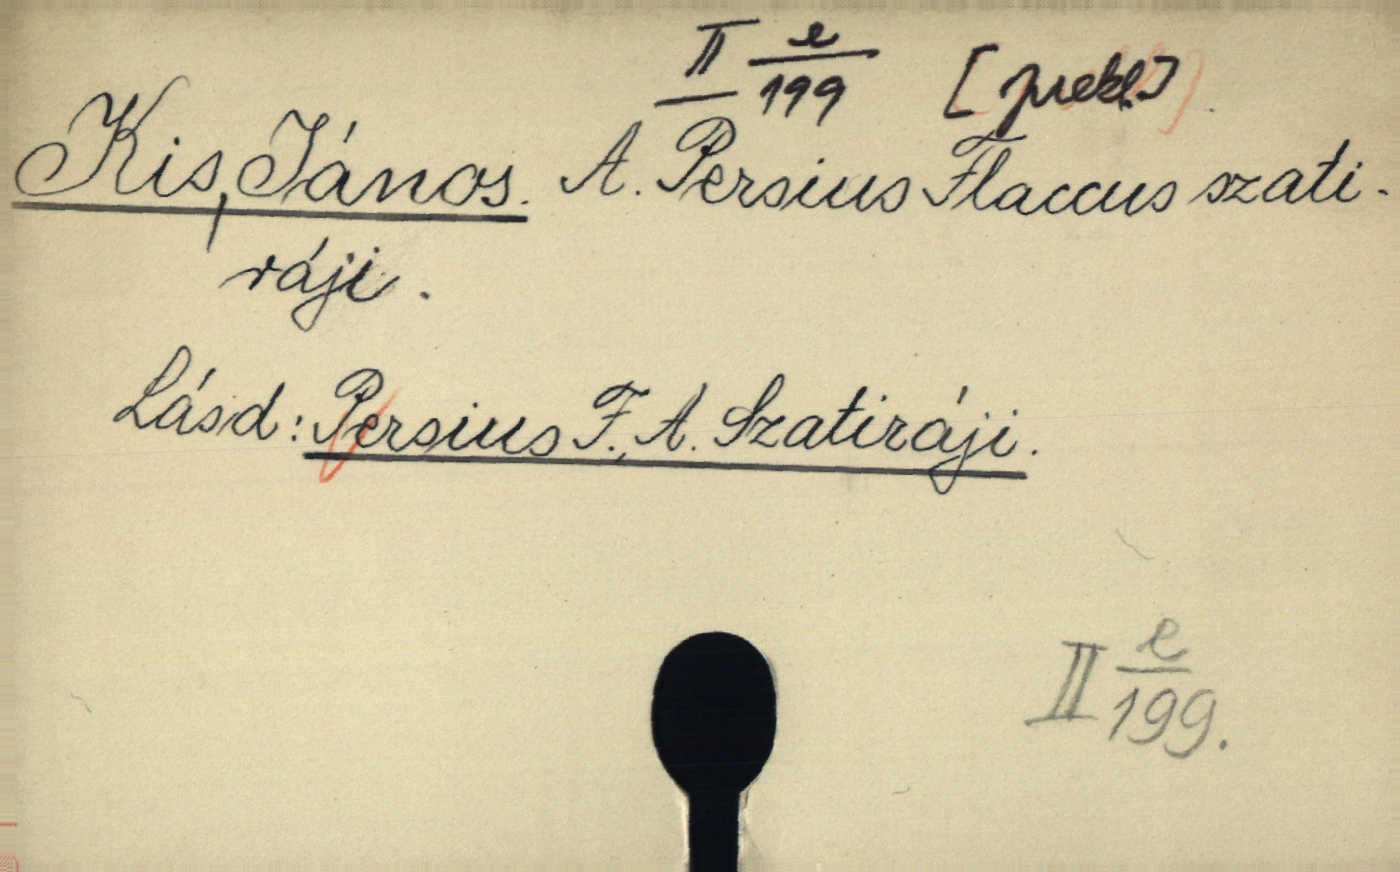 II e/199 [prekl.]
Kis, János. A. Persius Flaccus szati-
ráji.
Lásd: Persius F., A. Szatiráji.
II e/199.